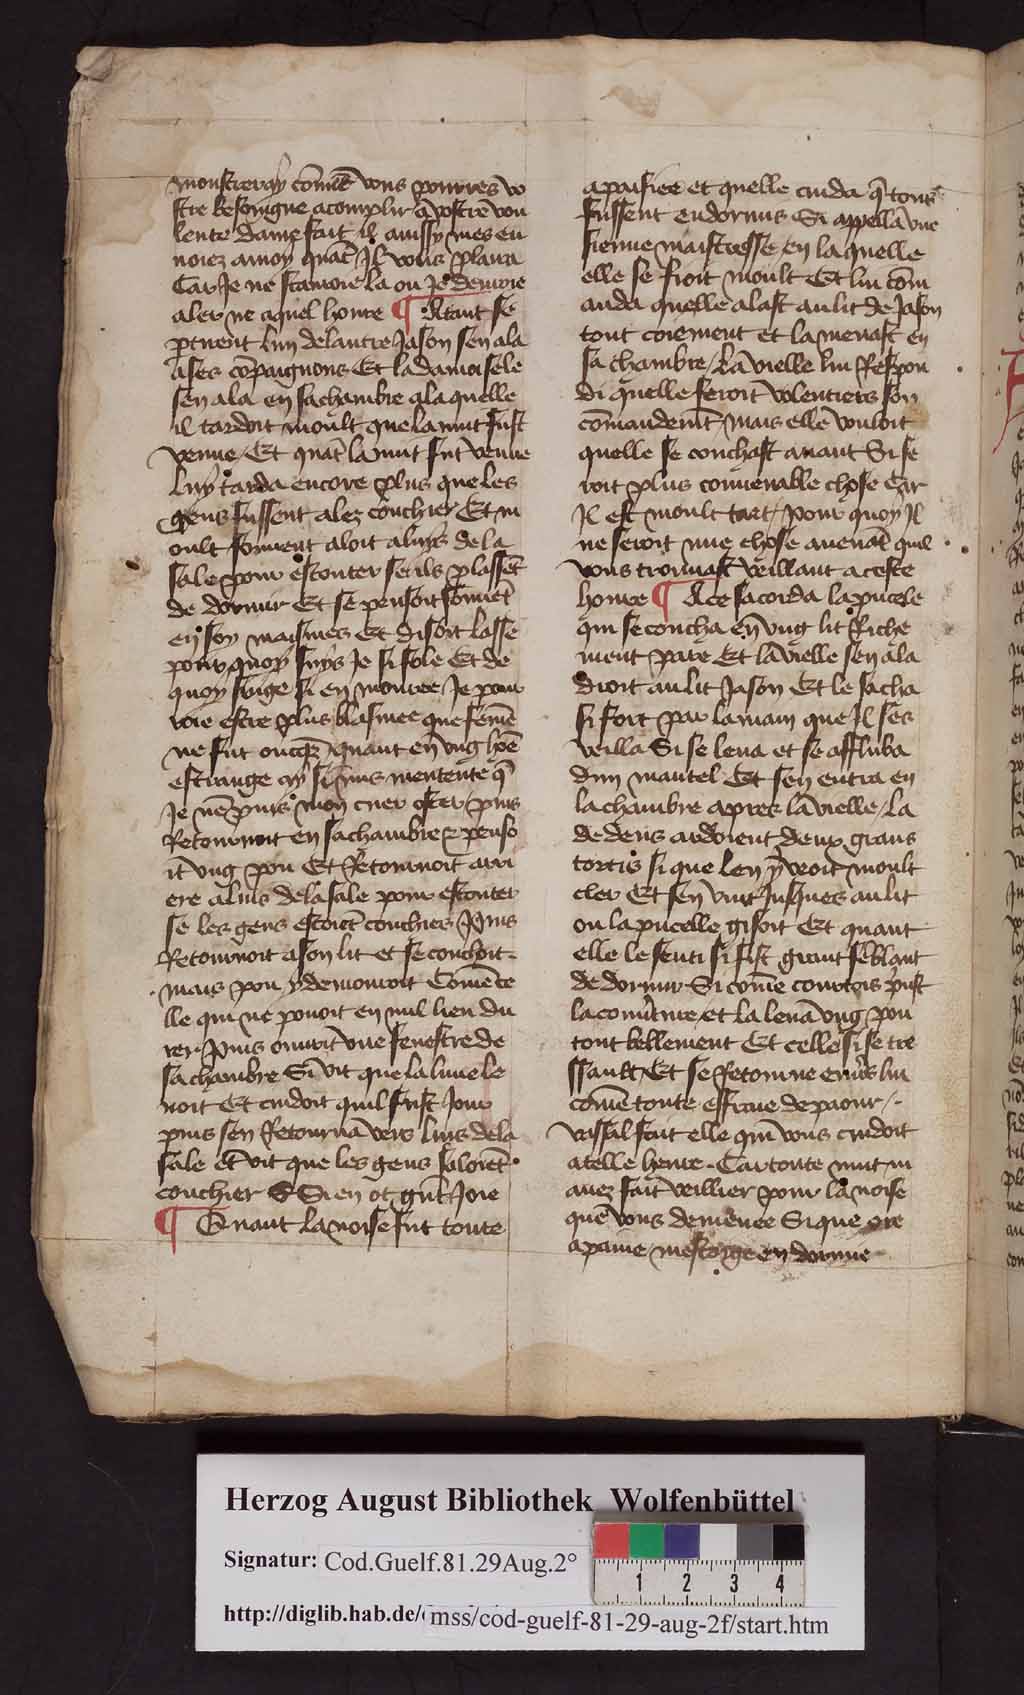 monstreray cōmēt vous pourres vo
stre besoingne acomplir a vostre vou
lente dame fait il aussy mes en
uoiez a moy quāt Il vous plaira
Car Je ne scauroie la ou Je demore
aler ne a quel heure ¶ Atant se
ptirent lun de lautre Jason sen ala
a ses cōpaignons Et la damoisele
sen ala en sa chambre a la quelle
il tardoit moult que la nuit fust
venue / Et quāt la nuit fut venue
luy tarda encore plus que les
gens fussent alez couchier Et m
oult souuent aloit a luys de la
sale pour escouter se ils plassēt
de dormir Et se pensoit souuēt
en soy maismes Et disoit lasse
pour quoy suys Je si fole Et de
quoy suige si en Je pour
roie estre plus blasmee que femē
ne fut oncqz quant en vng hōe
estrange ay si mis mentente q̄
Je nē puis mon cuer oster / puis
Retournoit en sa chambre & penso
it vng pou Et Retournoit arri
ere a luis de la sale pour escouter
se les gens estoiēt couchies / puis
Retournoit a son lit et se couchoit
mais pou y demouroit Comē ce
lle qui ne pouoit en nul lieu du
rer / puis ouurit vne fenestre de
sa chambre Si vit que la lune le
uoit Et cudoit quil fust Jour
puis sen Retourna vers luis de la
sale et vit que les gens saloiēt
couchier Si en ot grāt Joie
¶ Quant la noise fut toute
apaisiee et quelle cuida q̄ tous
fussent endormis Si appella vne
sienne maistresse / en la quelle
elle se fioit moult Et lui cōm
anda quelle alast au lit de Jason
tout coiement et la menast en
sa chambre / la vielle lui Respon
di quelle feroit volentiers son
cōmandemēt mais elle vouloit
quelle se couchast auant Si se
roit plus conuenable chose Car
Il est moult tart / pour quoy Il
ne seroit mie chose auenāt quil
vous trouuast veillant a ceste
heure ¶ A ce sacorda la pucele
qui se coucha en vng lit Riche
ment pare Et la vielle sen ala
droit au lit Jason Et le sacha
si fort par la main que Il ses
veilla Si se leua et se affluba
dun mantel Et sen entra en
la chambre apres la vielle / la
dedens ardoient deux grans
tortis si que len y veoit moult
cler Et sen vint Jusques au lit
ou la pucelle gisoit Et quant
elle le senti si fist grant sēblant
de dormir Si comē courtois prist
la couuture / et la leua vng pou
tout bellement Et celle si se tre
ssault / Et se Retourne enuers lui
comē toute effraee de paour /
vassal fait elle qui vous cudoit
a telle heure Car toute nuit m
auez fait veillier pour la noise
que vous demenee Si que ore
a paine mestoye endormie
Herzog August Bibliothek Wolfenbüttel
Signatur: Cod.Guelf.81.29Aug.2°
http://diglib.hab.de/ mss/cod-guelf-81-29-aug-2f/start.htm
1 2 3 4